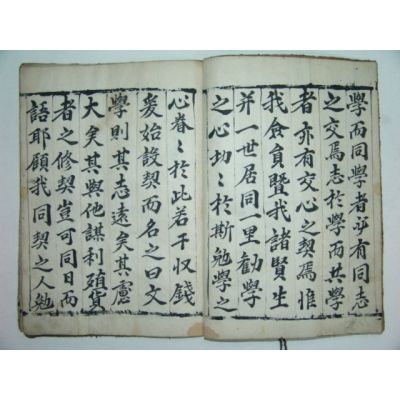 學而同學者乎有同志
之交焉志於學而共學
者亦有交心之契焉惟
我僉員曁我諸賢生
并一世居同一里勸學
之心切〻於斯勉學之
心眷〻於此若干收錢
爰始設契而名之曰文
學則其志遠矣其慮
大矣其與他謀利殖貨
者之修契豈可同日而
語耶顧我同契之人勉